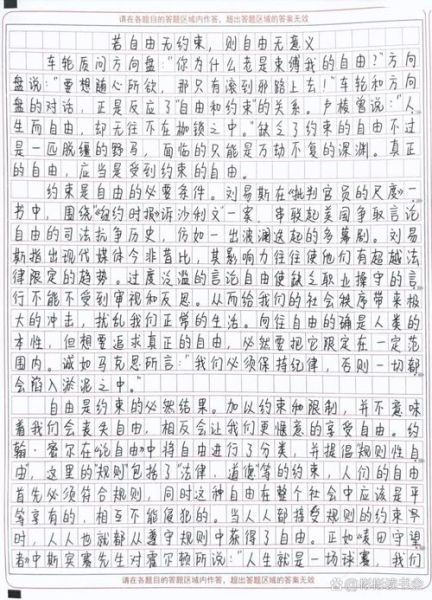 请在各题目的答题区域内作答，超出答题区域的答案无效
若自由无约束，则自由无意义
车轮质问方向盘："你为什么老是束缚我的自由？"方向
盘说："要想随心所欲，那只有滚到邪路上去！"车轮和方向
盘的对话，正是反应了"自由和约束"的关系。卢梭曾说："人
生而自由，却无往不在枷锁之中。"缺乏了约束的自由不过
是一匹脱缰的野马，面临的只能是万劫不复的深渊。真正
的自由，应当是受到约束的自由。
约束是自由的必要条件。刘易斯在《批判官员的尺度》一
书中，围绕"《纽约时报》诉沙利文"一案，串联起美国争取言论
自由的司法抗争历史，仿如一出波澜迭起的多幕剧。刘易
斯指出现代媒体今非昔比，其影响力往往使他们有超越法
律限定的趋势。过度泛滥的言论自由使缺乏职业操守的言
行不能不受到审视和反思。从而给我们的社会秩序带来极
大的冲击，扰乱我们正常的生活。向往自由的确是人类的
本性，但想要追求真正的自由，必然要把它限定在一定范
围内。诚如马克思所言："我们必须保持纪律，否则一切都
会陷入淤泥之中。"
自由是约束的必然结果。加以约束和限制，并不意味
着我们会丧失自由，相反会让我们更惬意的享受自由。约
翰·密尔在《论自由》中将自由进行了分类，并提倡"规则性自
由"，这里的"规则"包括了"法律、道德"等的约束，人们的自由
首先必须符合规则，同时这种自由在整个社会中应该是平
等享有的，相互不能侵犯的。当人人都接受规则的约束
时，人人也就都从遵守规则中获得了自由。正如《麦田守望
者》中斯宾塞先生对霍尔顿所说："人生就是一场球赛，我们
请在各题目的答题区域内作答，超出答题区域的答案无效